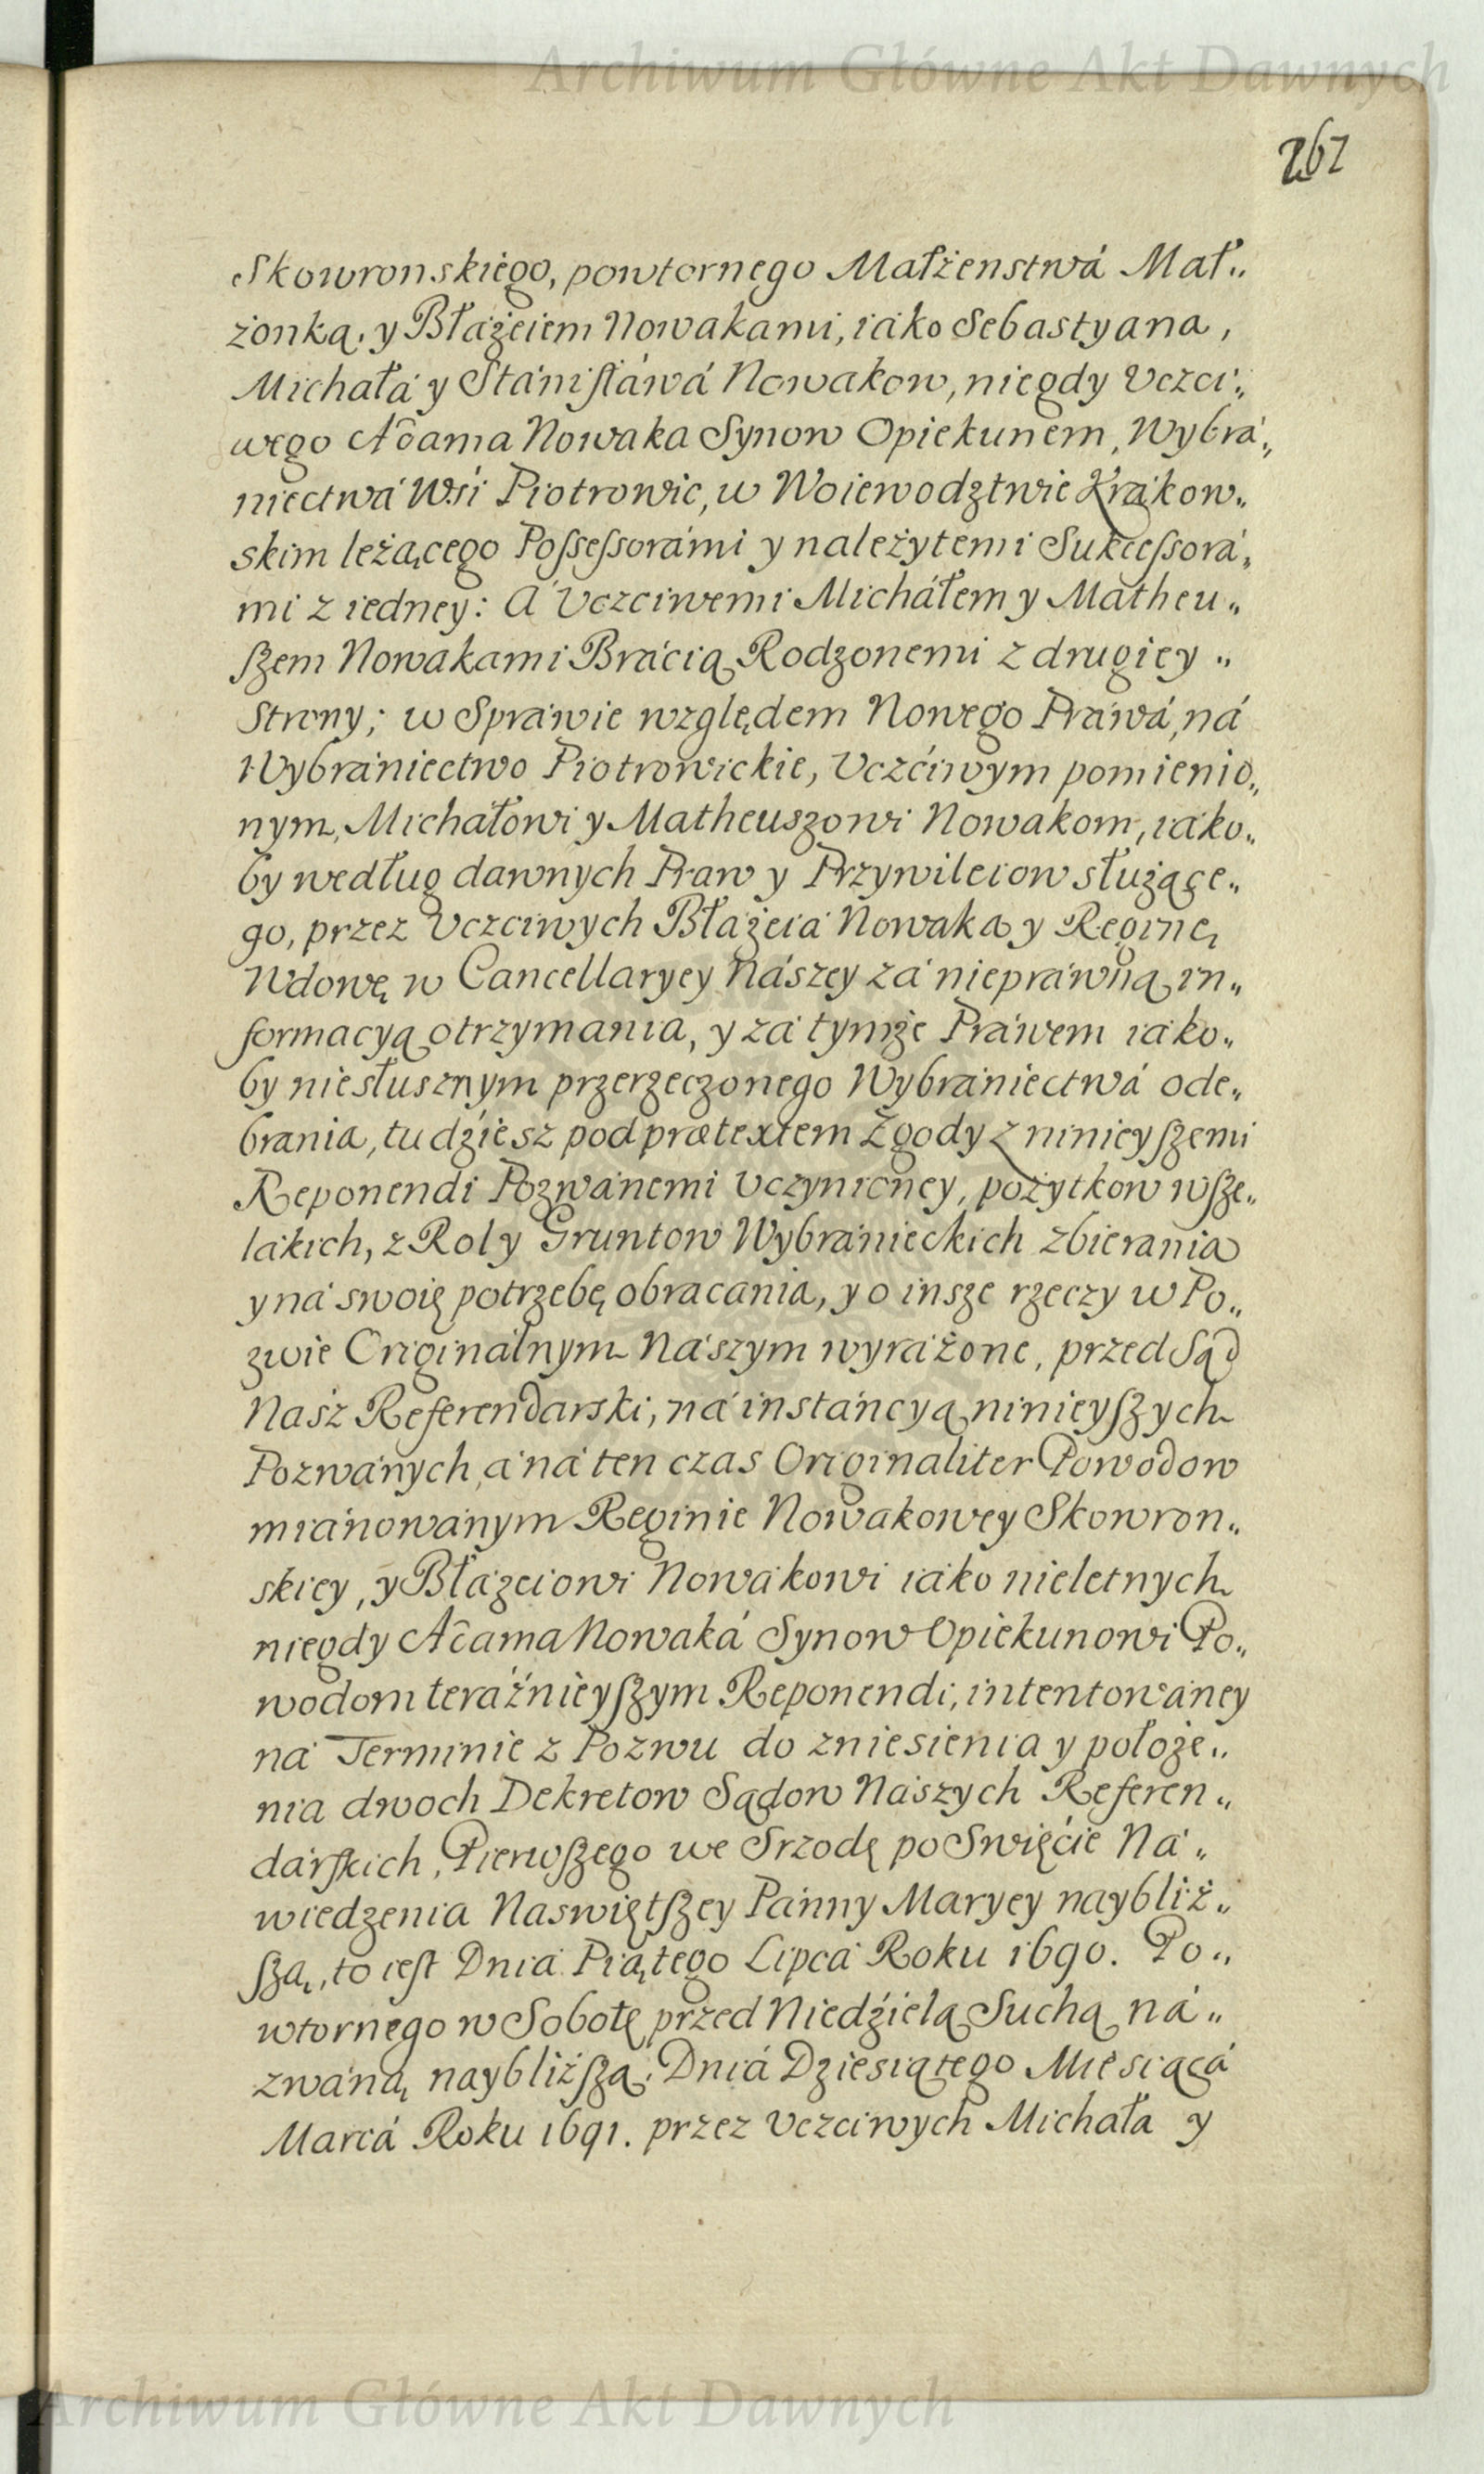 Archiwum Główne Akt Dawnych
267
Skowronskiego, powtornego Małżenstwá Mał„
żonką, y Błażeiem Nowakami, iako Sebastyana,
Michałá y Stánisłáwá Nowakow, niegdy Vczci„
wego Adama Nowaka Synow Opiekunem, Wybrá„
niectwá Wśi Piotrowic, w Woiewodztwie Krákow„
skim leżącego Possessorámi y należytemi Sukcessorá„
mi z iedney: A Vczciwemi Micháłem y Matheu„
szem Nowakami Brácią Rodzonemi z drugiey„
Strony; w Spráwie względem Nowego Práwá, ná
Wybrániectwo Piotrowickie, Vczćiwym pomienio„
nym, Michałowi y Matheuszowi Nowakom, iáko„
by według dawnych Praw y Przywileiow służące„
go, przez Vczciwych Błażeiá Nowaka y Reginę
Wdowę w Cancellaryey Nászey zá niepráwną in„
formacyą otrzymania, y zá tymże Práwem iáko„
by niesłusznym przerzeczonego Wybrániectwá ode„
brania, tudźiesz pod prætextem Zgody z ninieyszemi
Reponendi Pozwánemi Vczynioney, pożytkow wsze„
lákich, z Rol y Gruntow Wybránieckich zbierania
y ná swoię potrzebę obracania, y o insze rzeczy w Po„
zwie Originálnym Nászym wyráżone, przed Sąd
Nász Referendarski, ná instáncyą ninieyszych
Pozwánych, á ná ten czas Originaliter Powodow
miánowánym Reginie Nowakowey Skowron„
skiey, y Błáżeiowi Nowákowi iáko nieletnych
niegdy Adama Nowaká Synow Opiekunowi Po„
wodom teráźnieyszym Reponendi, intentowáney
ná Terminie z Pozwu do zniesienia y położe„
nia dwoch Dekretow Sądow Nászych Referen„
dárskich, Pierwszego we Srzodę po Swięćie Ná„
wiedzenia Naswiętszey Pánny Maryey naybliż„
szą, to iest Dniá Piątego Lipcá Roku 1690. Po„
wtornego w Sobotę przed Niedźielą Suchą ná„
zwáną naybliższą, Dniá Dziesiątego Miesiącá
Marcá Roku 1691. przez Vczciwych Michała y
Archiwum Główne Akt Dawnych